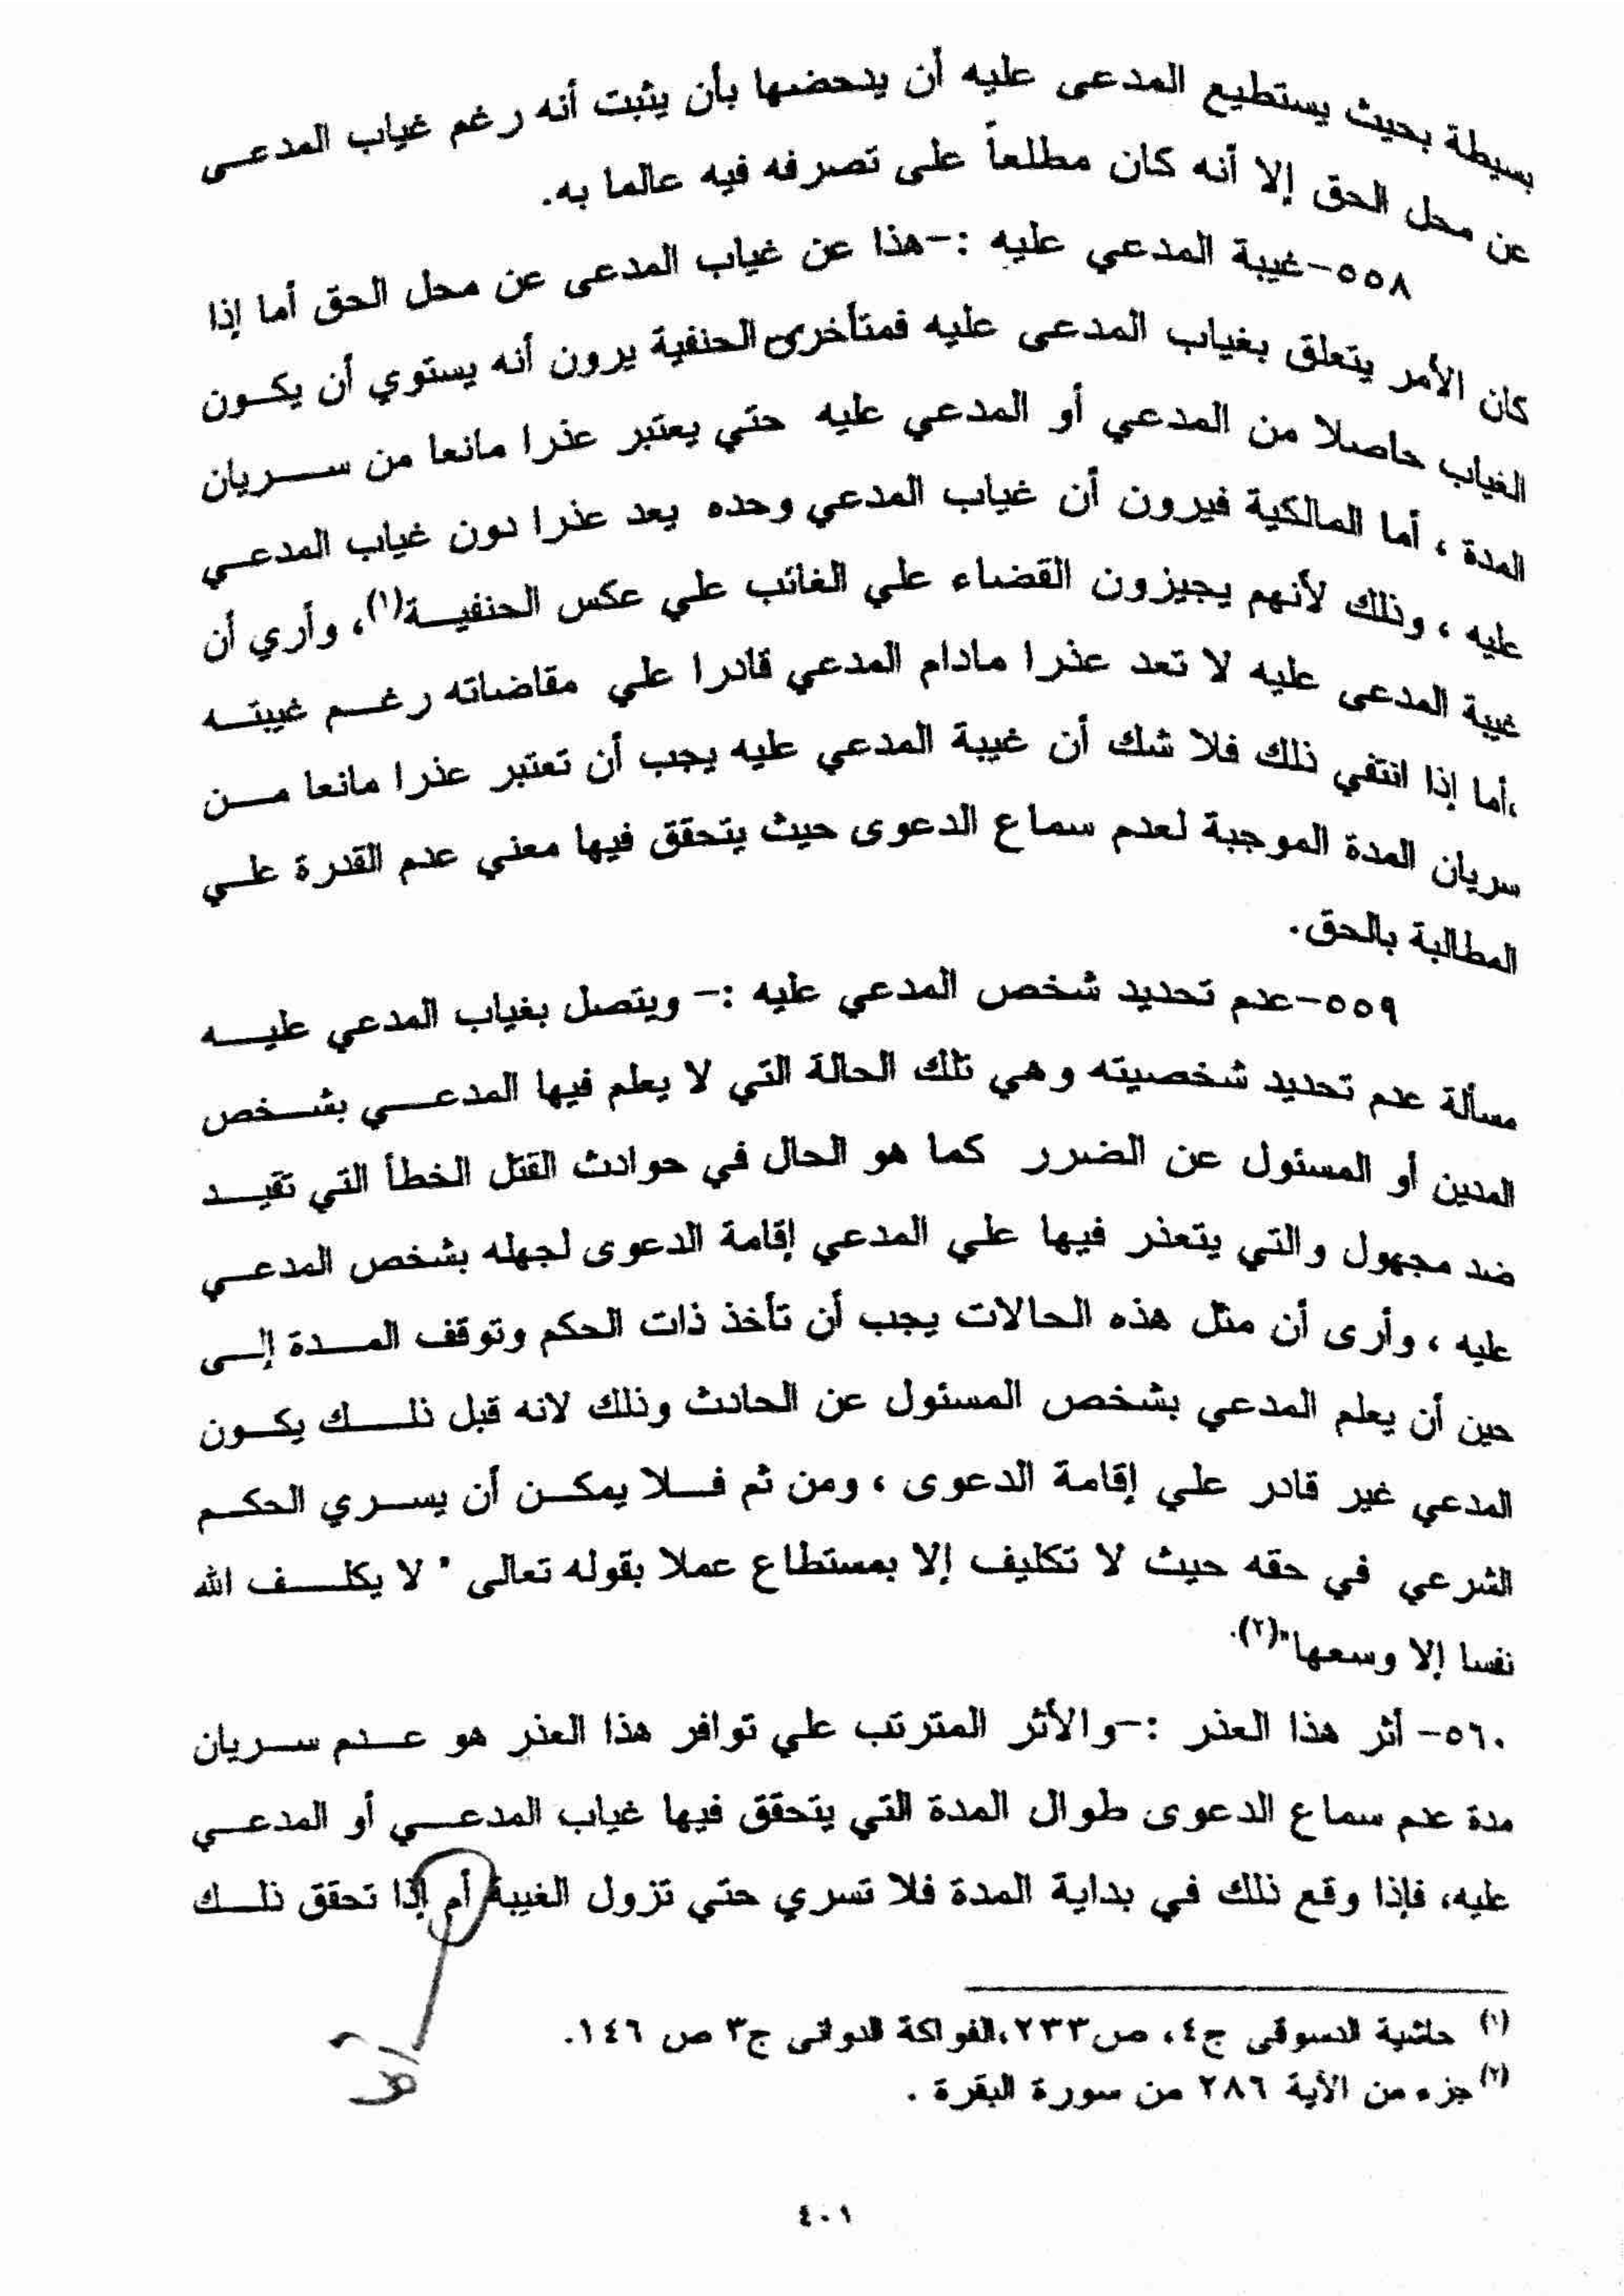 بسيطة بحيث يستطيع المدعى عليه أن يدحضها بأن يثبت أنه رغم غياب المدعى
عن محل الحق إلا أنه كان مطلعاً على تصرفه فيه عالما به.
٥٥٨-غيبة المدعي عليه :-هذا عن غياب المدعى عن محل الحق أما إذا
كان الأمر يتعلق بغياب المدعى عليه فمتأخرى الحنفية يرون أنه يستوي أن يكون
الغياب حاصلا من المدعي أو المدعي عليه حتي يعتبر عذرا مانعا من سريان
المدة ، أما المالكية فيرون أن غياب المدعي وحده يعد عذرا دون غياب المدعي
عليه ، وذلك لأنهم يجيزون القضاء علي الغائب علي عكس الحنفية(١)، وأري أن
غيبة المدعى عليه لا تعد عذرا مادام المدعي قادرا علي مقاضاته رغم غيبته
،أما إذا انتفي ذلك فلا شك أن غيبة المدعي عليه يجب أن تعتبر عذرا مانعا من
سريان المدة الموجبة لعدم سماع الدعوى حيث يتحقق فيها معني عدم القدرة علي
المطالبة بالحق.
٥٥٩-عدم تحديد شخص المدعي عليه :- ويتصل بغياب المدعي عليه
مسألة عدم تحديد شخصيته وهي تلك الحالة التي لا يعلم فيها المدعي بشخص
المدين أو المسئول عن الضرر كما هو الحال في حوادث القتل الخطأ التي تقيد
ضد مجهول والتي يتعذر فيها علي المدعي إقامة الدعوى لجهله بشخص المدعي
عليه ، وأرى أن مثل هذه الحالات يجب أن تأخذ ذات الحكم وتوقف المدة إلى
حين أن يعلم المدعي بشخص المسئول عن الحادث وذلك لانه قبل ذلك يكون
المدعي غير قادر علي إقامة الدعوى ، ومن ثم فلا يمكن أن يسري الحكم
الشرعي في حقه حيث لا تكليف إلا بمستطاع عملا بقوله تعالى " لا يكلف الله
نفسا إلا وسعها"(٢).
٥٦٠- أثر هذا العذر :-والأثر المترتب علي توافر هذا العذر هو عدم سريان
مدة عدم سماع الدعوى طوال المدة التي يتحقق فيها غياب المدعي أو المدعي
عليه، فإذا وقع ذلك في بداية المدة فلا تسري حتي تزول الغيبة أم إذا تحقق ذلك
(١) حاشية الدسوقى ج٤، ص٢٣٣،الفواكة الدوانى ج٣ ص ١٤٦.
(٢) جزء من الآية ٢٨٦ من سورة البقرة .
٤٠١